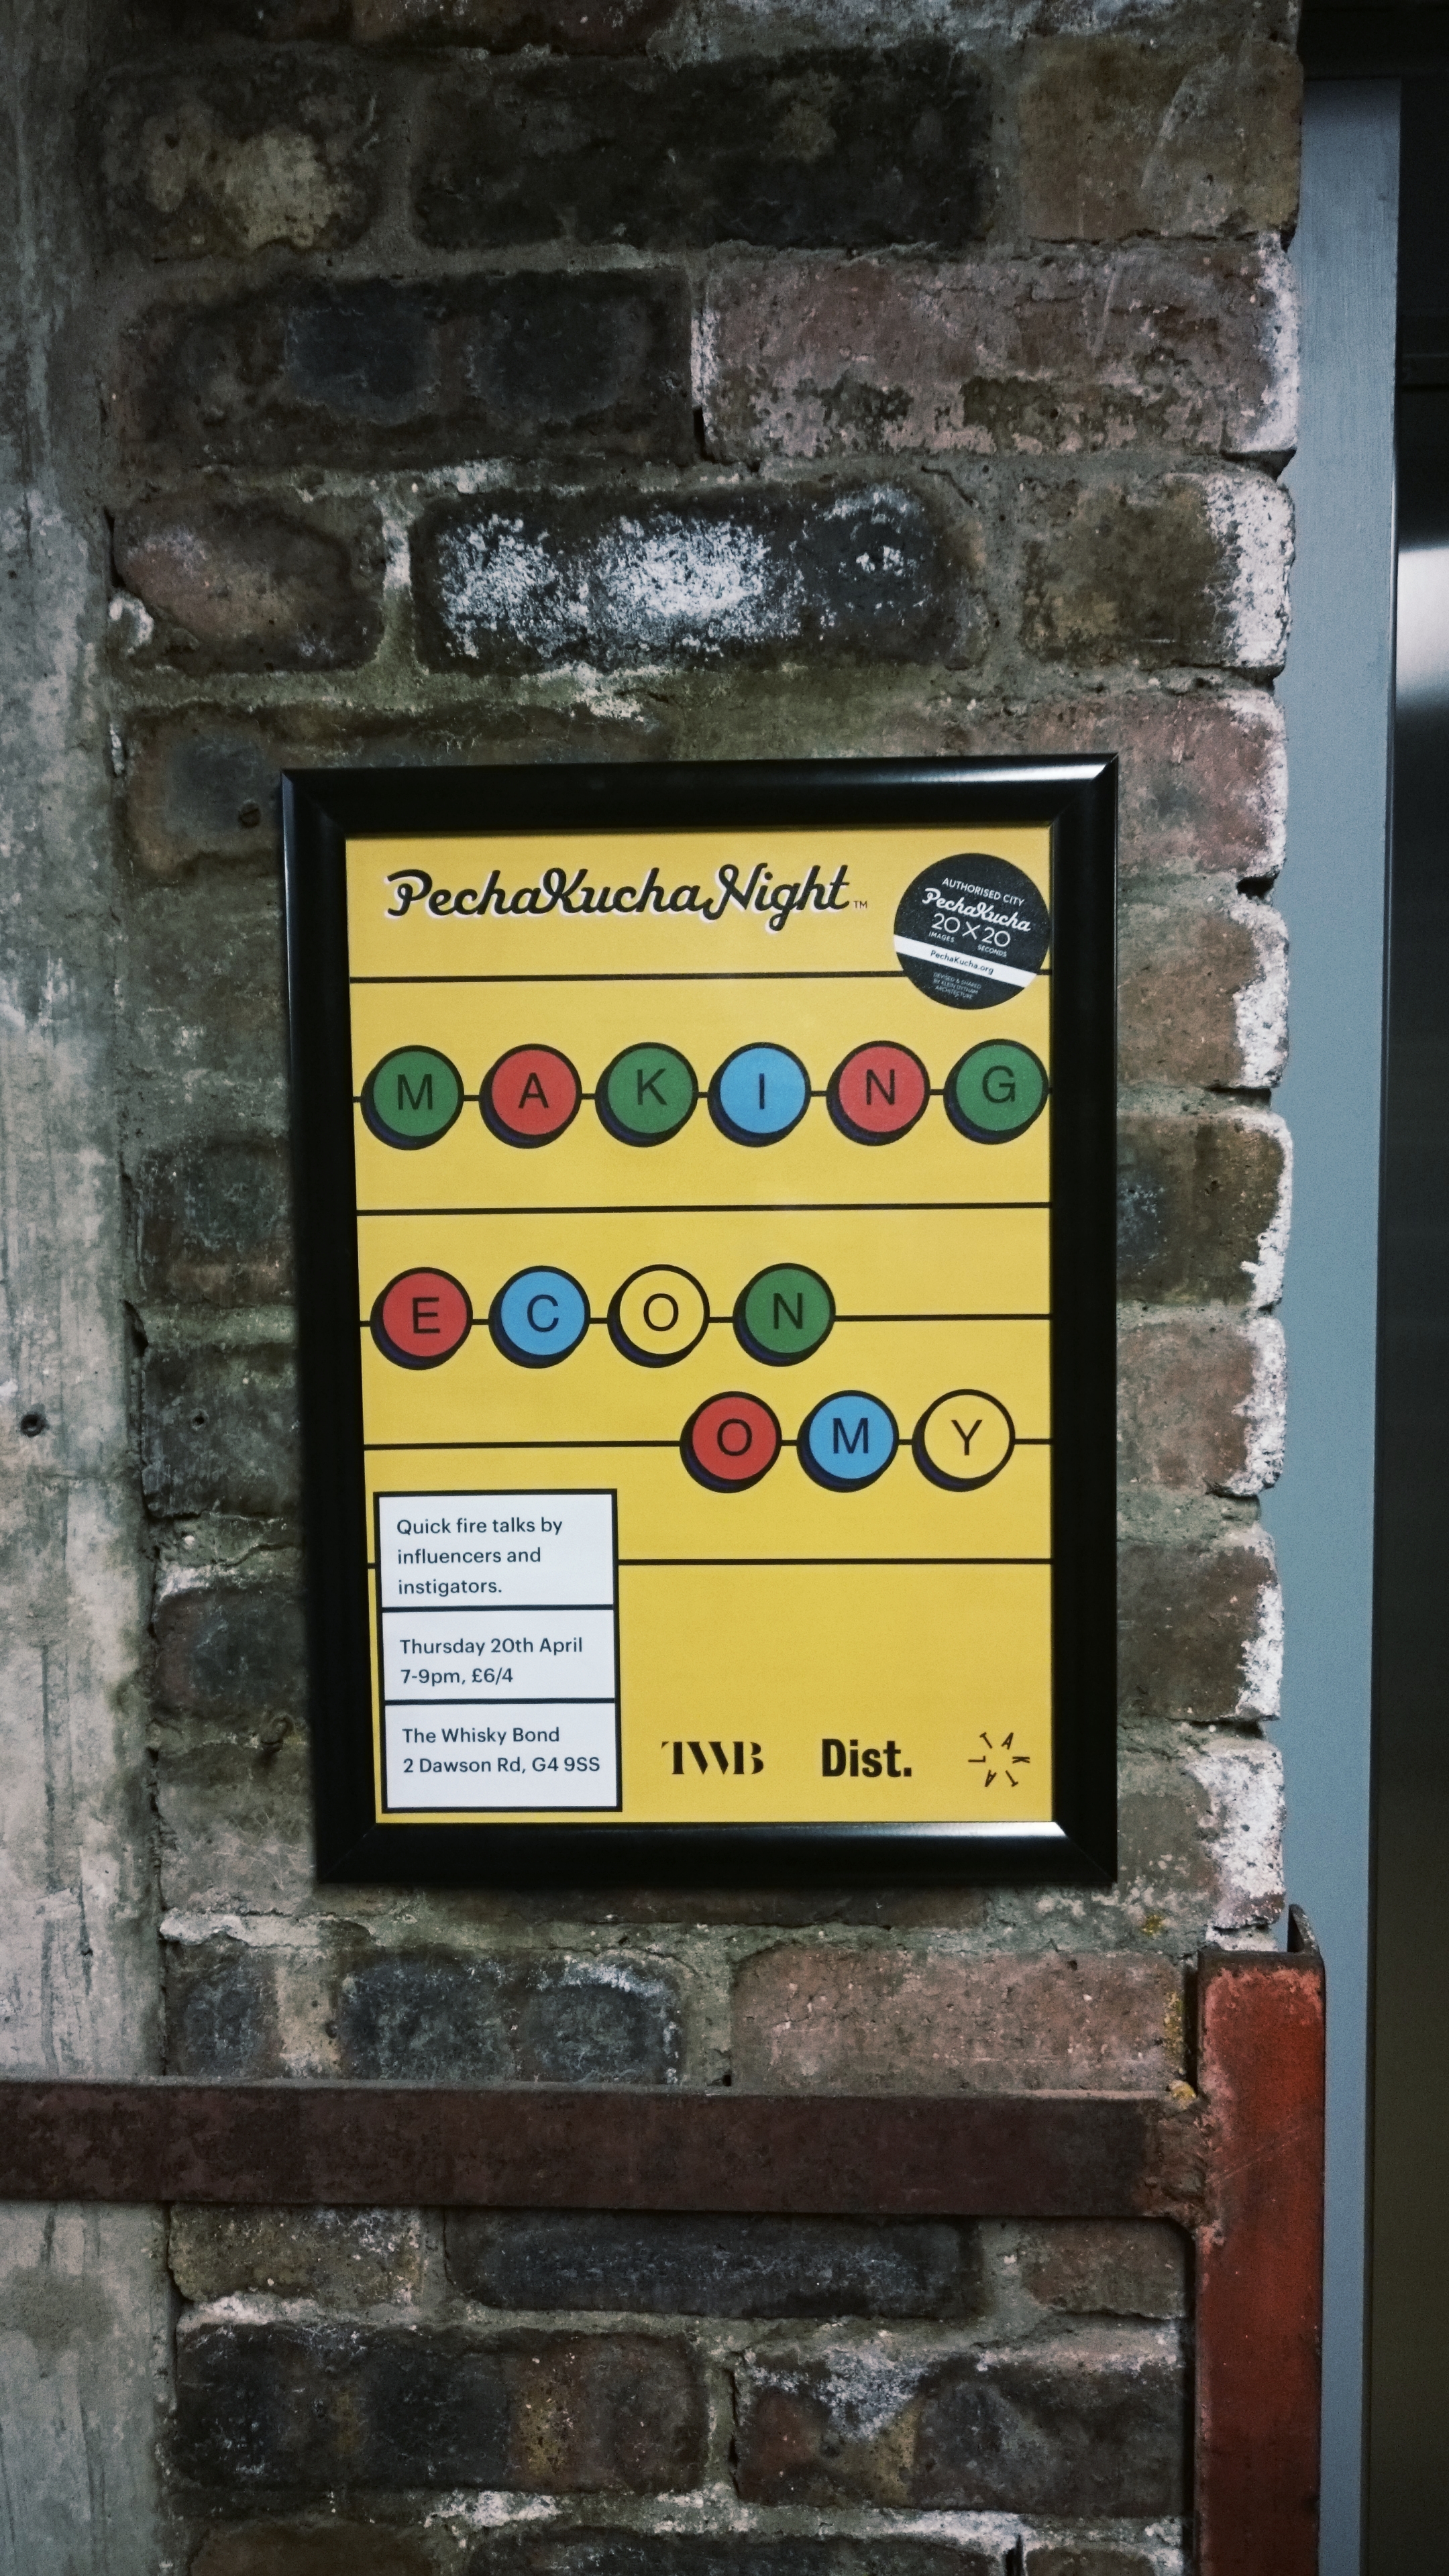 PechaKucha Night™
AUTHORISED CITY
PechaKucha
20X20
IMAGES SECONDS
PechaKucha.org
DEVISED & SHARED
BY KLEIN DYTHAM
ARCHITECTURE
MAKING
ECON
OMY
Quick fire talks by
influencers and
instigators.
Thursday 20th April
7-9pm, £6/4
The Whisky Bond
2 Dawson Rd, G4 9SS
TWB
Dist.
TAKTAL